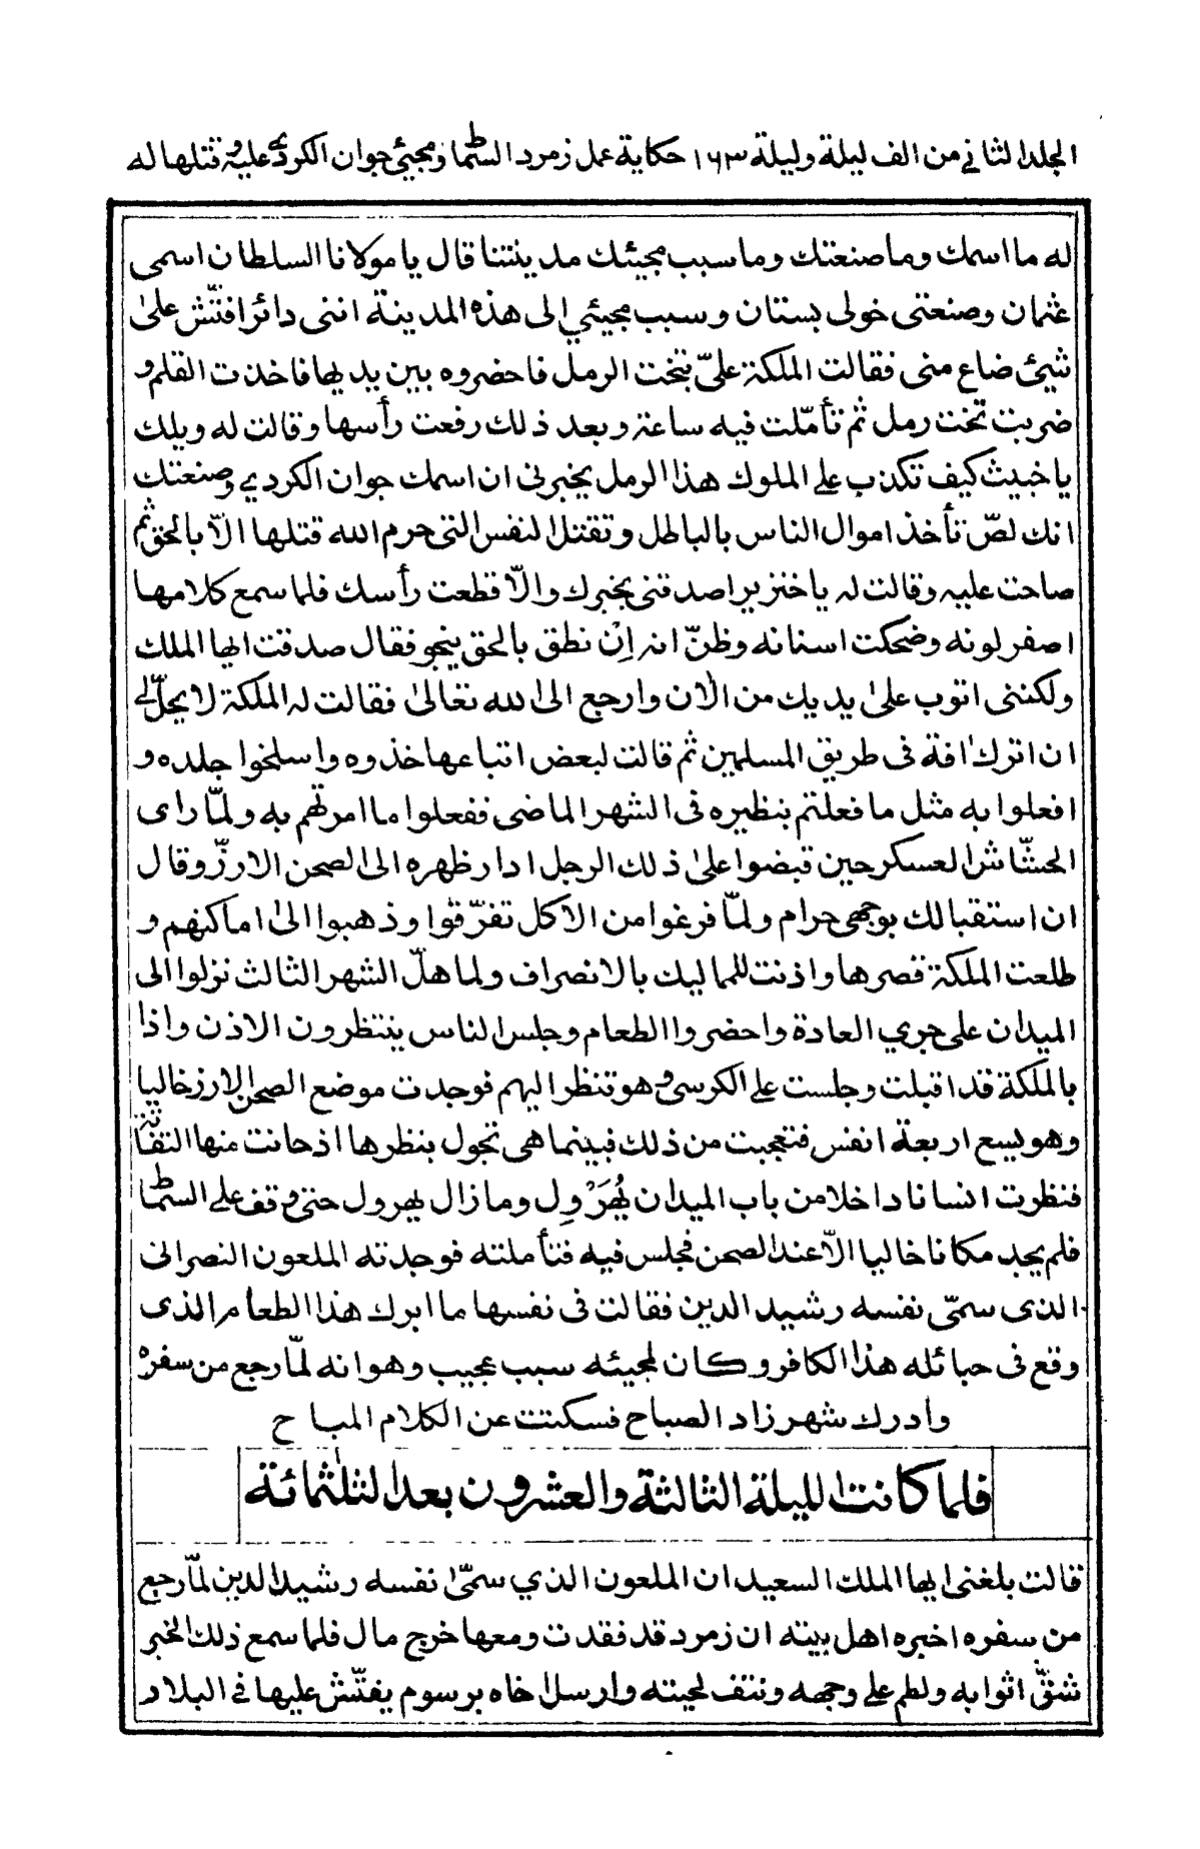 الجلد الثاني من الف ليلة وليلة ١٦٣ حكاية عمل زمرد السماط ومجيئ جوان الكردي عليه وقتلها له
له ما اسمك وما صنعتك وما سبب مجيئك مدينتنا قال يا مولانا السلطان اسمى
عثمان وصنعتى خولى بستان وسبب مجيئي الى هذه المدينة اننى دائر افتّش علىٰ
شيئ ضاع منى فقالت الملكة علىّ بتخت الرمل فاحضروه بين يديها فاخذت القلم و
ضربت تخت رمل ثم تأمّلت فيه ساعة وبعد ذلك رفعت رأسها وقالت له ويلك
يا خبيث كيف تكذب على الملوك هذا الرمل يخبرنى ان اسمك جوان الكردي وصنعتك
انك لصّ تأخذ اموال الناس بالباطل وتقتل النفس التى حرم الله قتلها الّا بالحق ثم
صاحت عليه وقالت له يا خنزير اصدقنى بخبرك والّا قطعت رأسك فلما سمع كلامها
اصفر لونه وضحكت اسنانه وظنّ انه اِنْ نطق بالحق ينجو فقال صدقت ايها الملك
ولكننى اتوب علىٰ يديك من الآن وارجع الىٰ لله تعالىٰ فقالت له الملكة لا يحلّ لى
ان اترك افة فى طريق المسلمين ثم قالت لبعض اتباعها خذوه واسلخوا جلده و
افعلوا به مثل ما فعلتم بنظيره فى الشهر الماضى ففعلوا ما امرتهم به ولمّا راى
الحشّاش العسكر حين قبضوا علىٰ ذلك الرجل ادار ظهره الى الصحن الارزّ وقال
ان استقبالك بوجهى حرام ولمّا فرغوا من الاكل تفرّقوا وذهبوا الىٰ اماكنهم و
طلعت الملكة قصرها واذنت للمماليك بالانصراف ولما هلّ الشهر الثالث نزلوا الى
الميدان على جري العادة واحضروا الطعام وجلس الناس ينتظرون الاذن واذا
بالملكة قد اقبلت وجلست على الكرسى وهو تنظر اليهم فوجدت موضع الصحن الارز خاليا
وهو يسع اربعة انفس فتعجبت من ذلك فبينما هى تجول بنظرها اذ حانت منها التفاتة
فنظرت انسانا داخلا من باب الميدان يُهَرْوِل وما زال يهرول حتى وقف على السماط
فلم يجد مكانا خاليا الّا عند الصحن فجلس فيه فتأملته فوجدته الملعون النصرانى
الذى سمّى نفسه رشيد الدين فقالت فى نفسها ما ابرك هذا الطعام الذى
وقع فى حبائله هذا الكافر وكان لمجيئه سبب عجيب وهو انه لمّا رجع من سفره
وادرك شهرزاد الصباح فسكتت عن الكلام المباح
فلما كانت الليلة الثالثة والعشرون بعد الثلٰثمائة
قالت بلغنى ايها الملك السعيد ان الملعون الذي سمّىٰ نفسه رشيد الدين لمّا رجع
من سفره اخبره اهل بيته ان زمرد قد فقدت ومعها خرج مال فلما سمع ذلك الخبر
شقّ اثوابه ولطم على وجهه ونتف لحيته وارسل اخاه برسوم يفتّش عليها فى البلاد